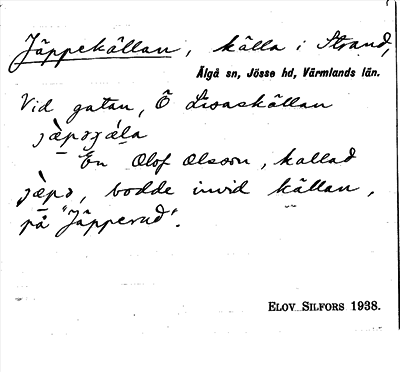 Jäppekällan, källa i Strand,
Älgå sn, Jösse hd, Värmlands län.
Vid gatan, Ö Lisaskällan
En Olof Olsson, kallad
jä̀pə, bodde invid källan,
på "Jäpperud".
ELOV SILFORS 1938.